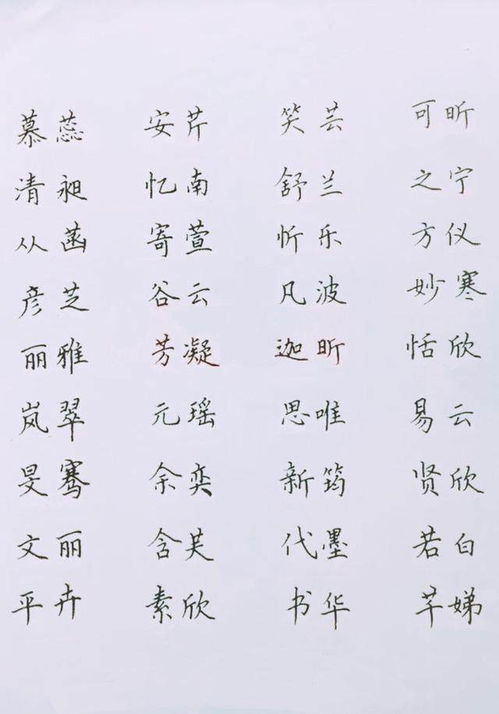 慕蕊 安芹 笑芸 可昕
清昶 忆南 舒兰 之宁
从菡 寄萱 忻乐 方仪
彦芝 谷云 凡波 妙寒
丽雅 芳凝 迦昕 恬欣
岚翠 元瑶 思唯 易云
旻骞 余奕 新筠 贤欣
文丽 含芙 代墨 若白
平卉 素欣 书华 芊娣